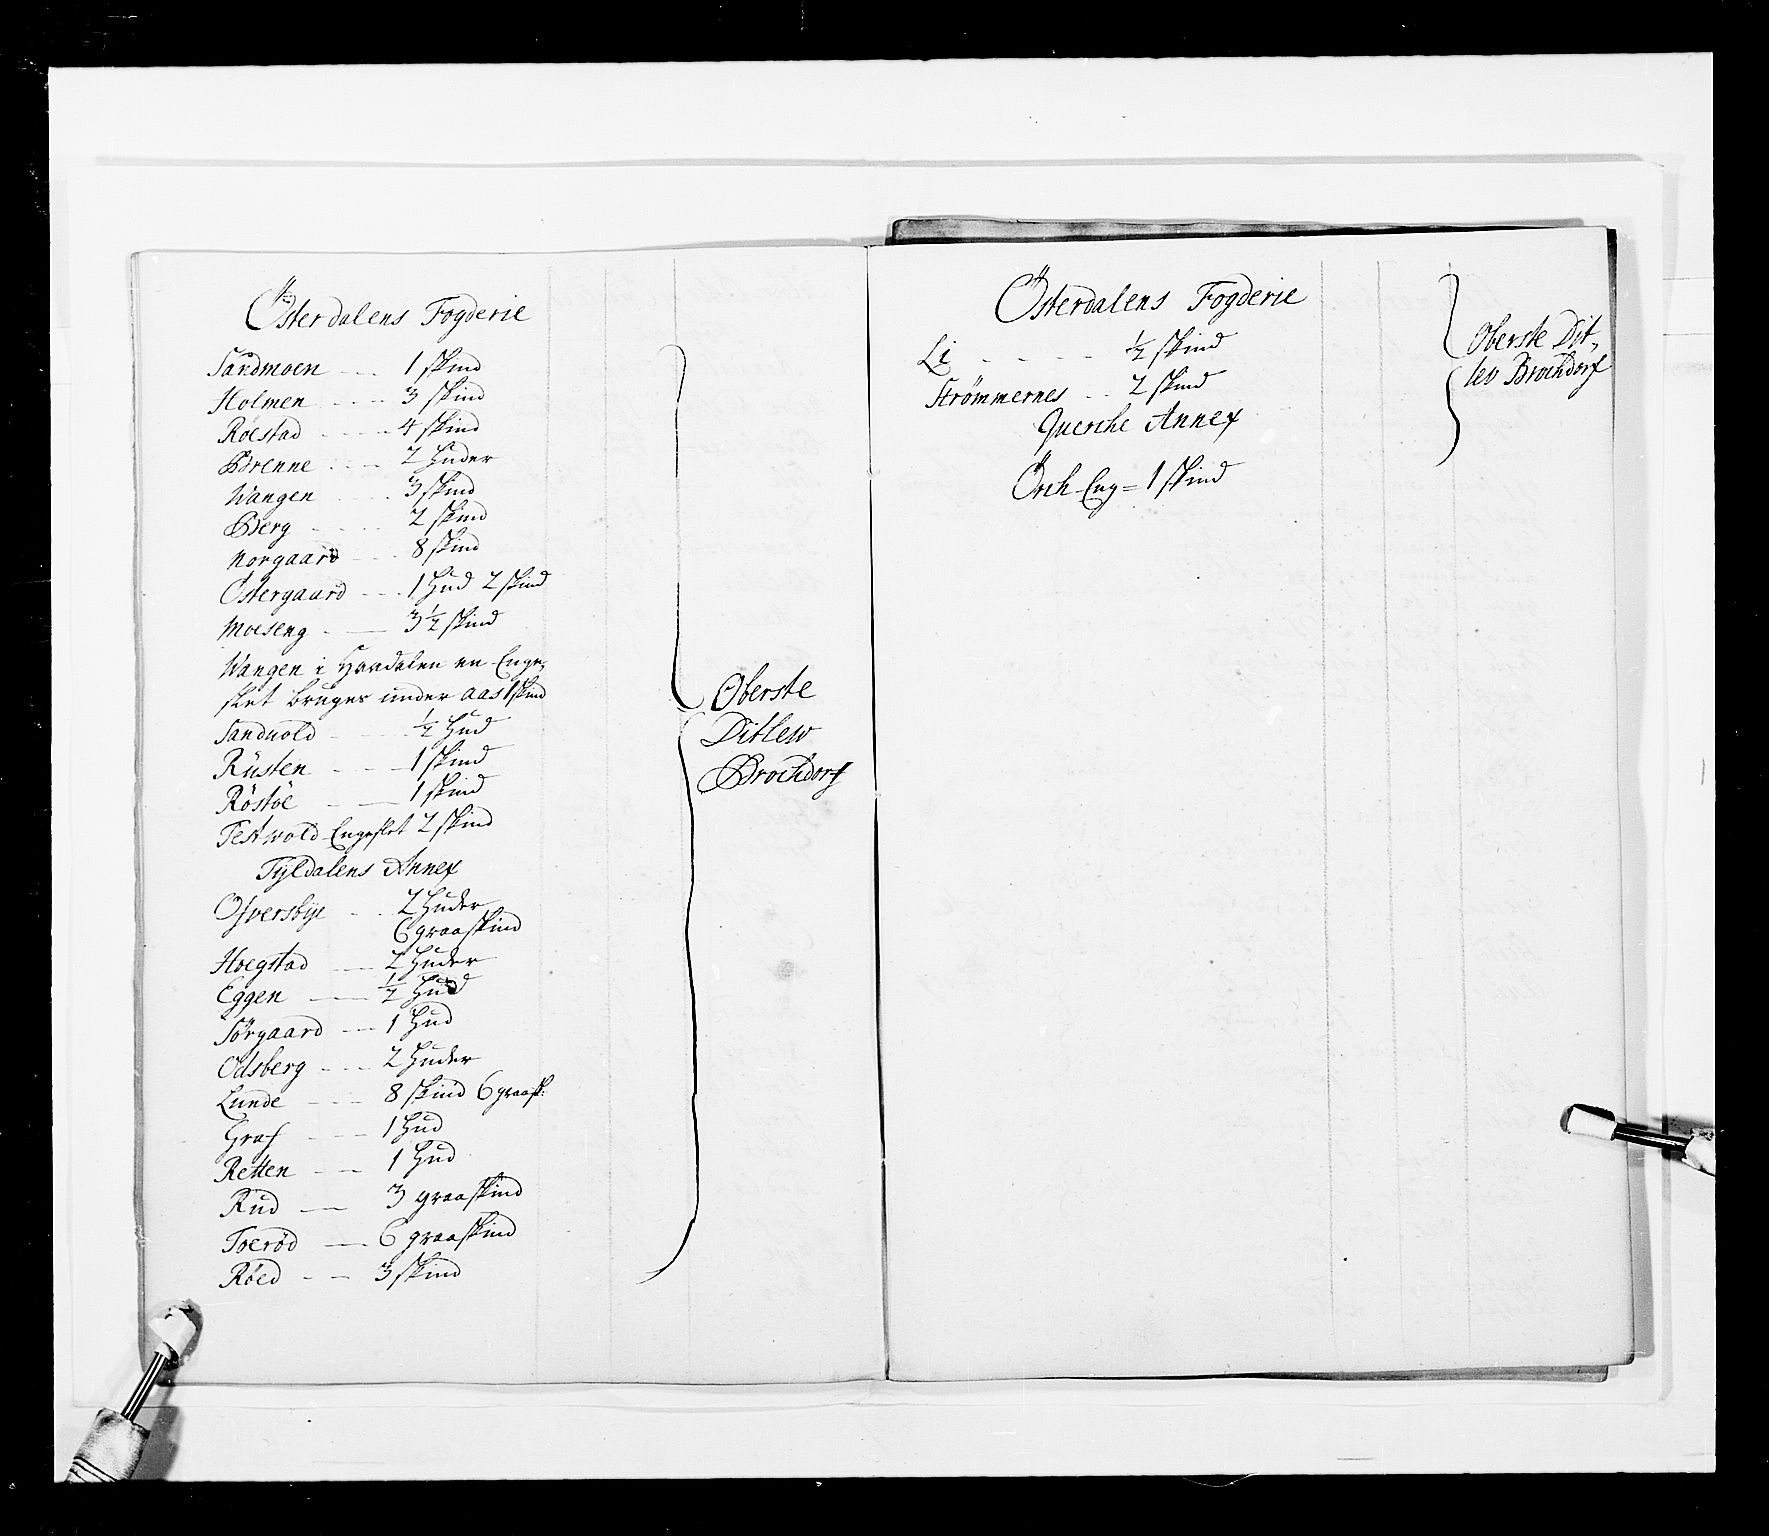 Østerdalens Fogderie
Sandmoen - - - 1 skind
Holmen - - - - 3 skind
Roestad - - - - 4 skind
Brenne - - - - 2 Huder
Wangen - - - 3 skind
Berg - - - - 2 skind
Norgaard - - - 8 skind
Östergaard - - - 1 Hud 2 skind
Moeseng - — 3½ skind
Wangen i Haadalen en Enge-
slet bruges under Aas 1 skind
Sandvold - - - - ½ Hud
Rüsten - - - 1 skind
Röstöe - — 1 skind
Testwold Engeslet 2 skind
Tyldalens Annex
Ofversbye - - 2 Huder
6 graaskind
Hoegstad - — 2 Huder
Eggen — ½ Hud
Sørgaard - - - 1 Hud
Odsberg - - - 2 Huder
Lunde - - - 8 skind 6 graask:
Graf - - - 1 Hud
Retten - - - 1 Hud
Rud - — 3 graaskind
Toeröd — 6 graaskind
Röed - - - 3 skind
Oberste
Ditlew
Brochdorf
Österdalens Fogderie
Li - - - - - ½ skind
Strømmernes - - 2 skind
Querche Annex
Örch Eng = 1 skind
Oberste Dit-
lev Brochdorf